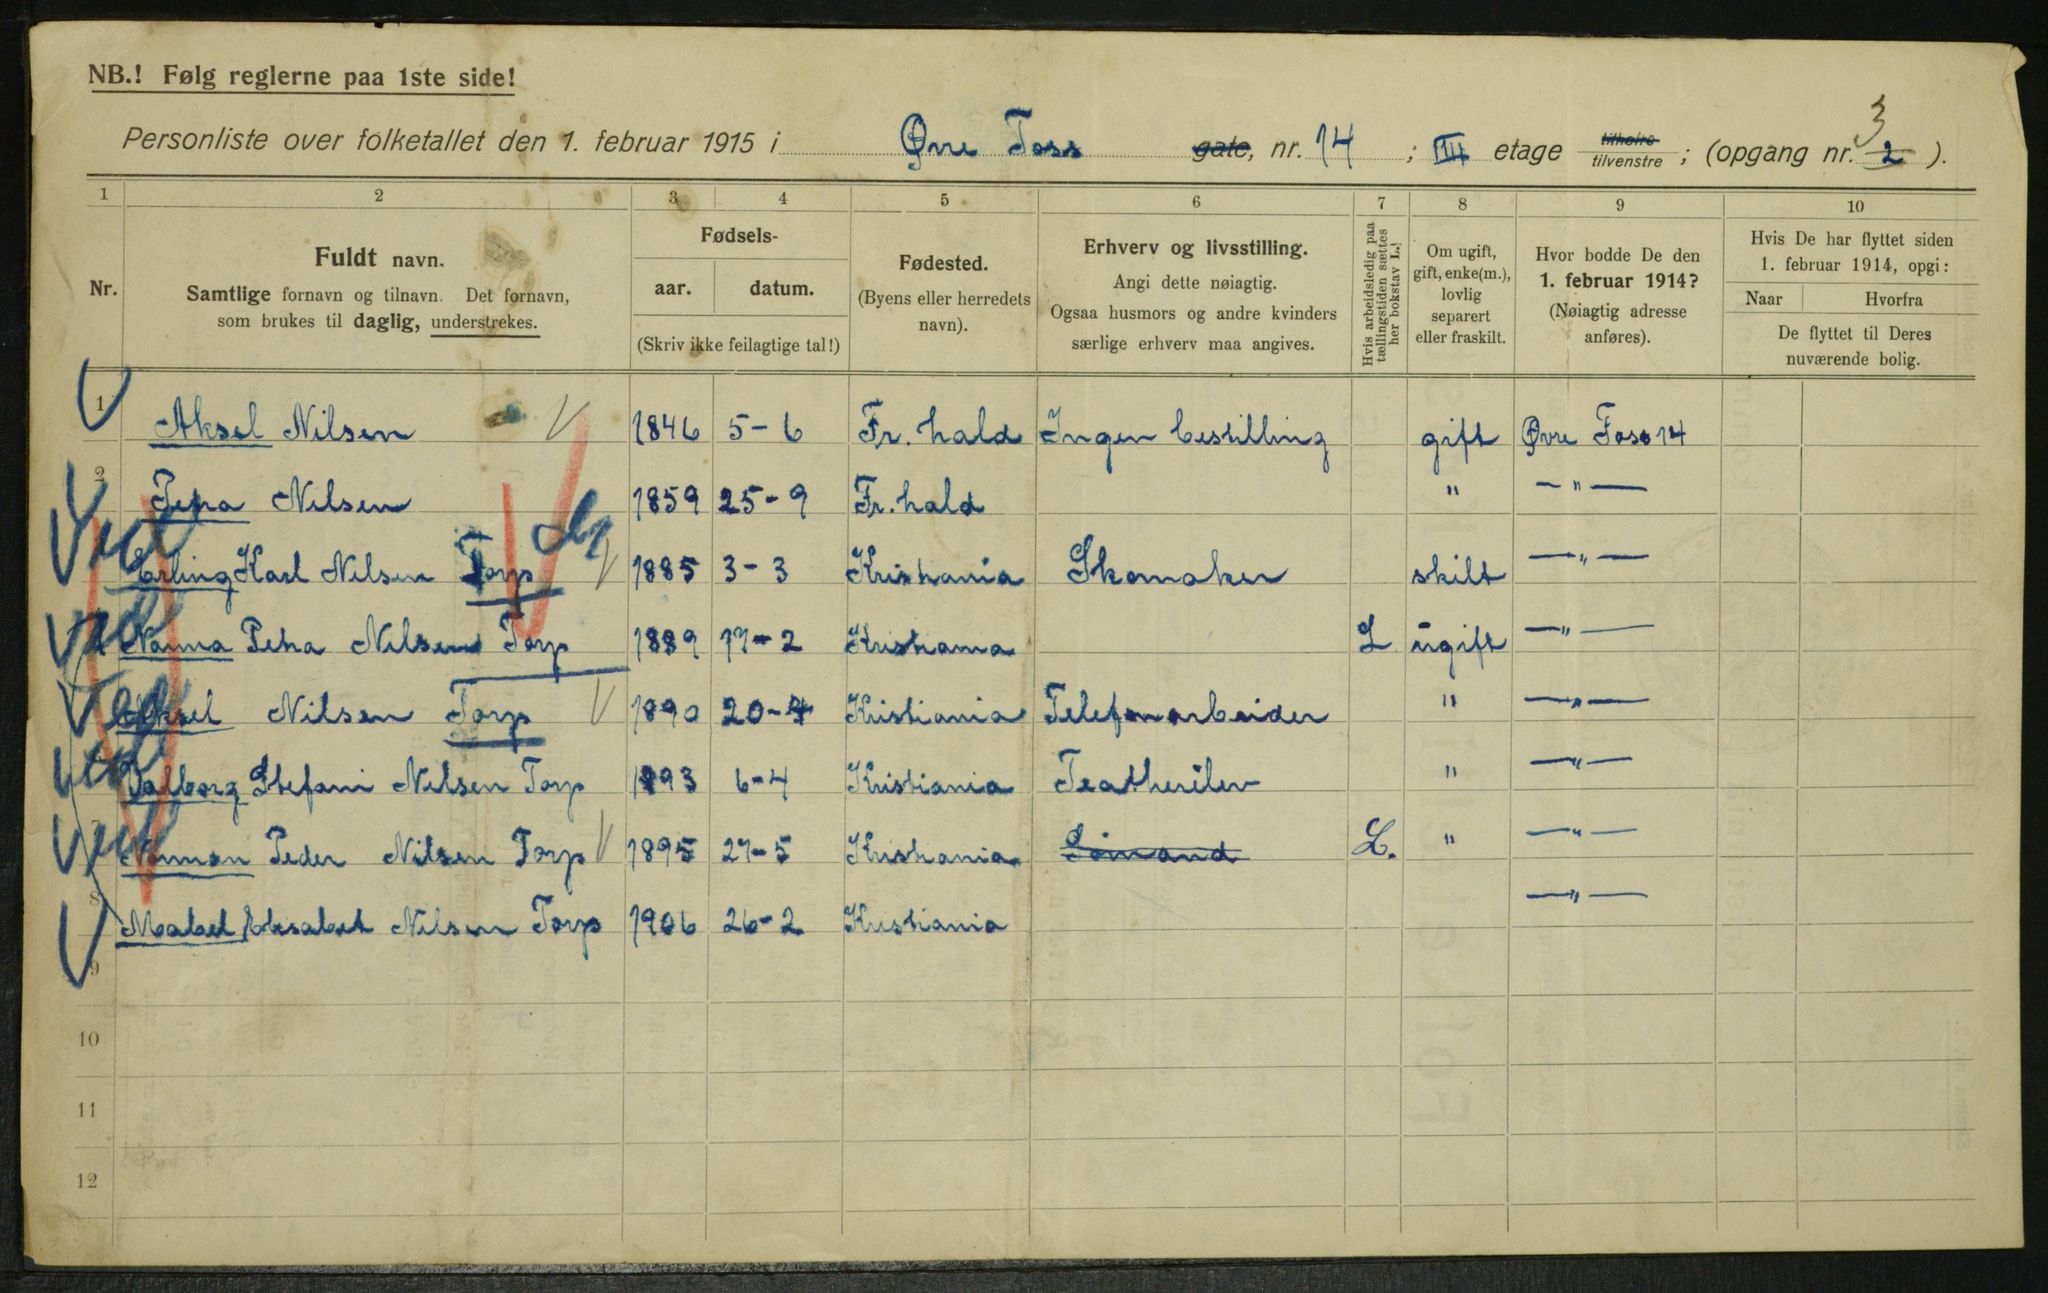 NB.! Følg reglerne paa 1ste side!
Personliste over folketallet den 1. februar 1915 i Øvre Foss gate, nr. 14 ; III etage tilhøire tilvenstre ; (opgang nr. 2 3 ).
1 2 3 4 5 6 7 8 9 10
Nr.
Fuldt navn.
Samtlige fornavn og tilnavn. Det fornavn,
som brukes til daglig, understrekes.
Fødsels-
aar. datum.
(Skriv ikke feilagtige tal!)
Fødested.
(Byens eller herredets
navn).
Erhverv og livsstilling.
Angi dette nøiagtig.
Ogsaa husmors og andre kvinders
særlige erhverv maa angives.
Hvis arbeidsledig paa
tællingstiden sættes
her bokstav L.!
Om ugift,
gift, enke(m.),
lovlig
separert
eller fraskilt.
Hvor bodde De den
1. februar 1914?
(Nøiagtig adresse
anføres).
Hvis De har flyttet siden
1. februar 1914, opgi:
Naar Hvorfra
De flyttet til Deres
nuværende bolig.
1 Aksel Nilsen 1846 5-6 Fr. hald Ingen bestilling gift Øvre Foss 14
2 Nilsen 1859 25-9 Fr. hald " — " —
Erling Karl Nilsen Torp 1885 3-3 Kristiania Skomaker skilt — " —
Nanna Petra Nilsen Torp 1889 17-2 Kristiania L ugift — " —
Aksel Nilsen Torp 1890 20-4 Kristiania Telefonarbeider " — " —
Valborg Stefani Nilsen Torp 1893 6-4 Kristiania Teatherelev " — " —
7 Peder Nilsen Torp 1895 27-5 Kristiania Sömand L. " — " —
8 Mabel Elisabet Nilsen Torp 1906 26-2 Kristiania — " —
9
10
11
12